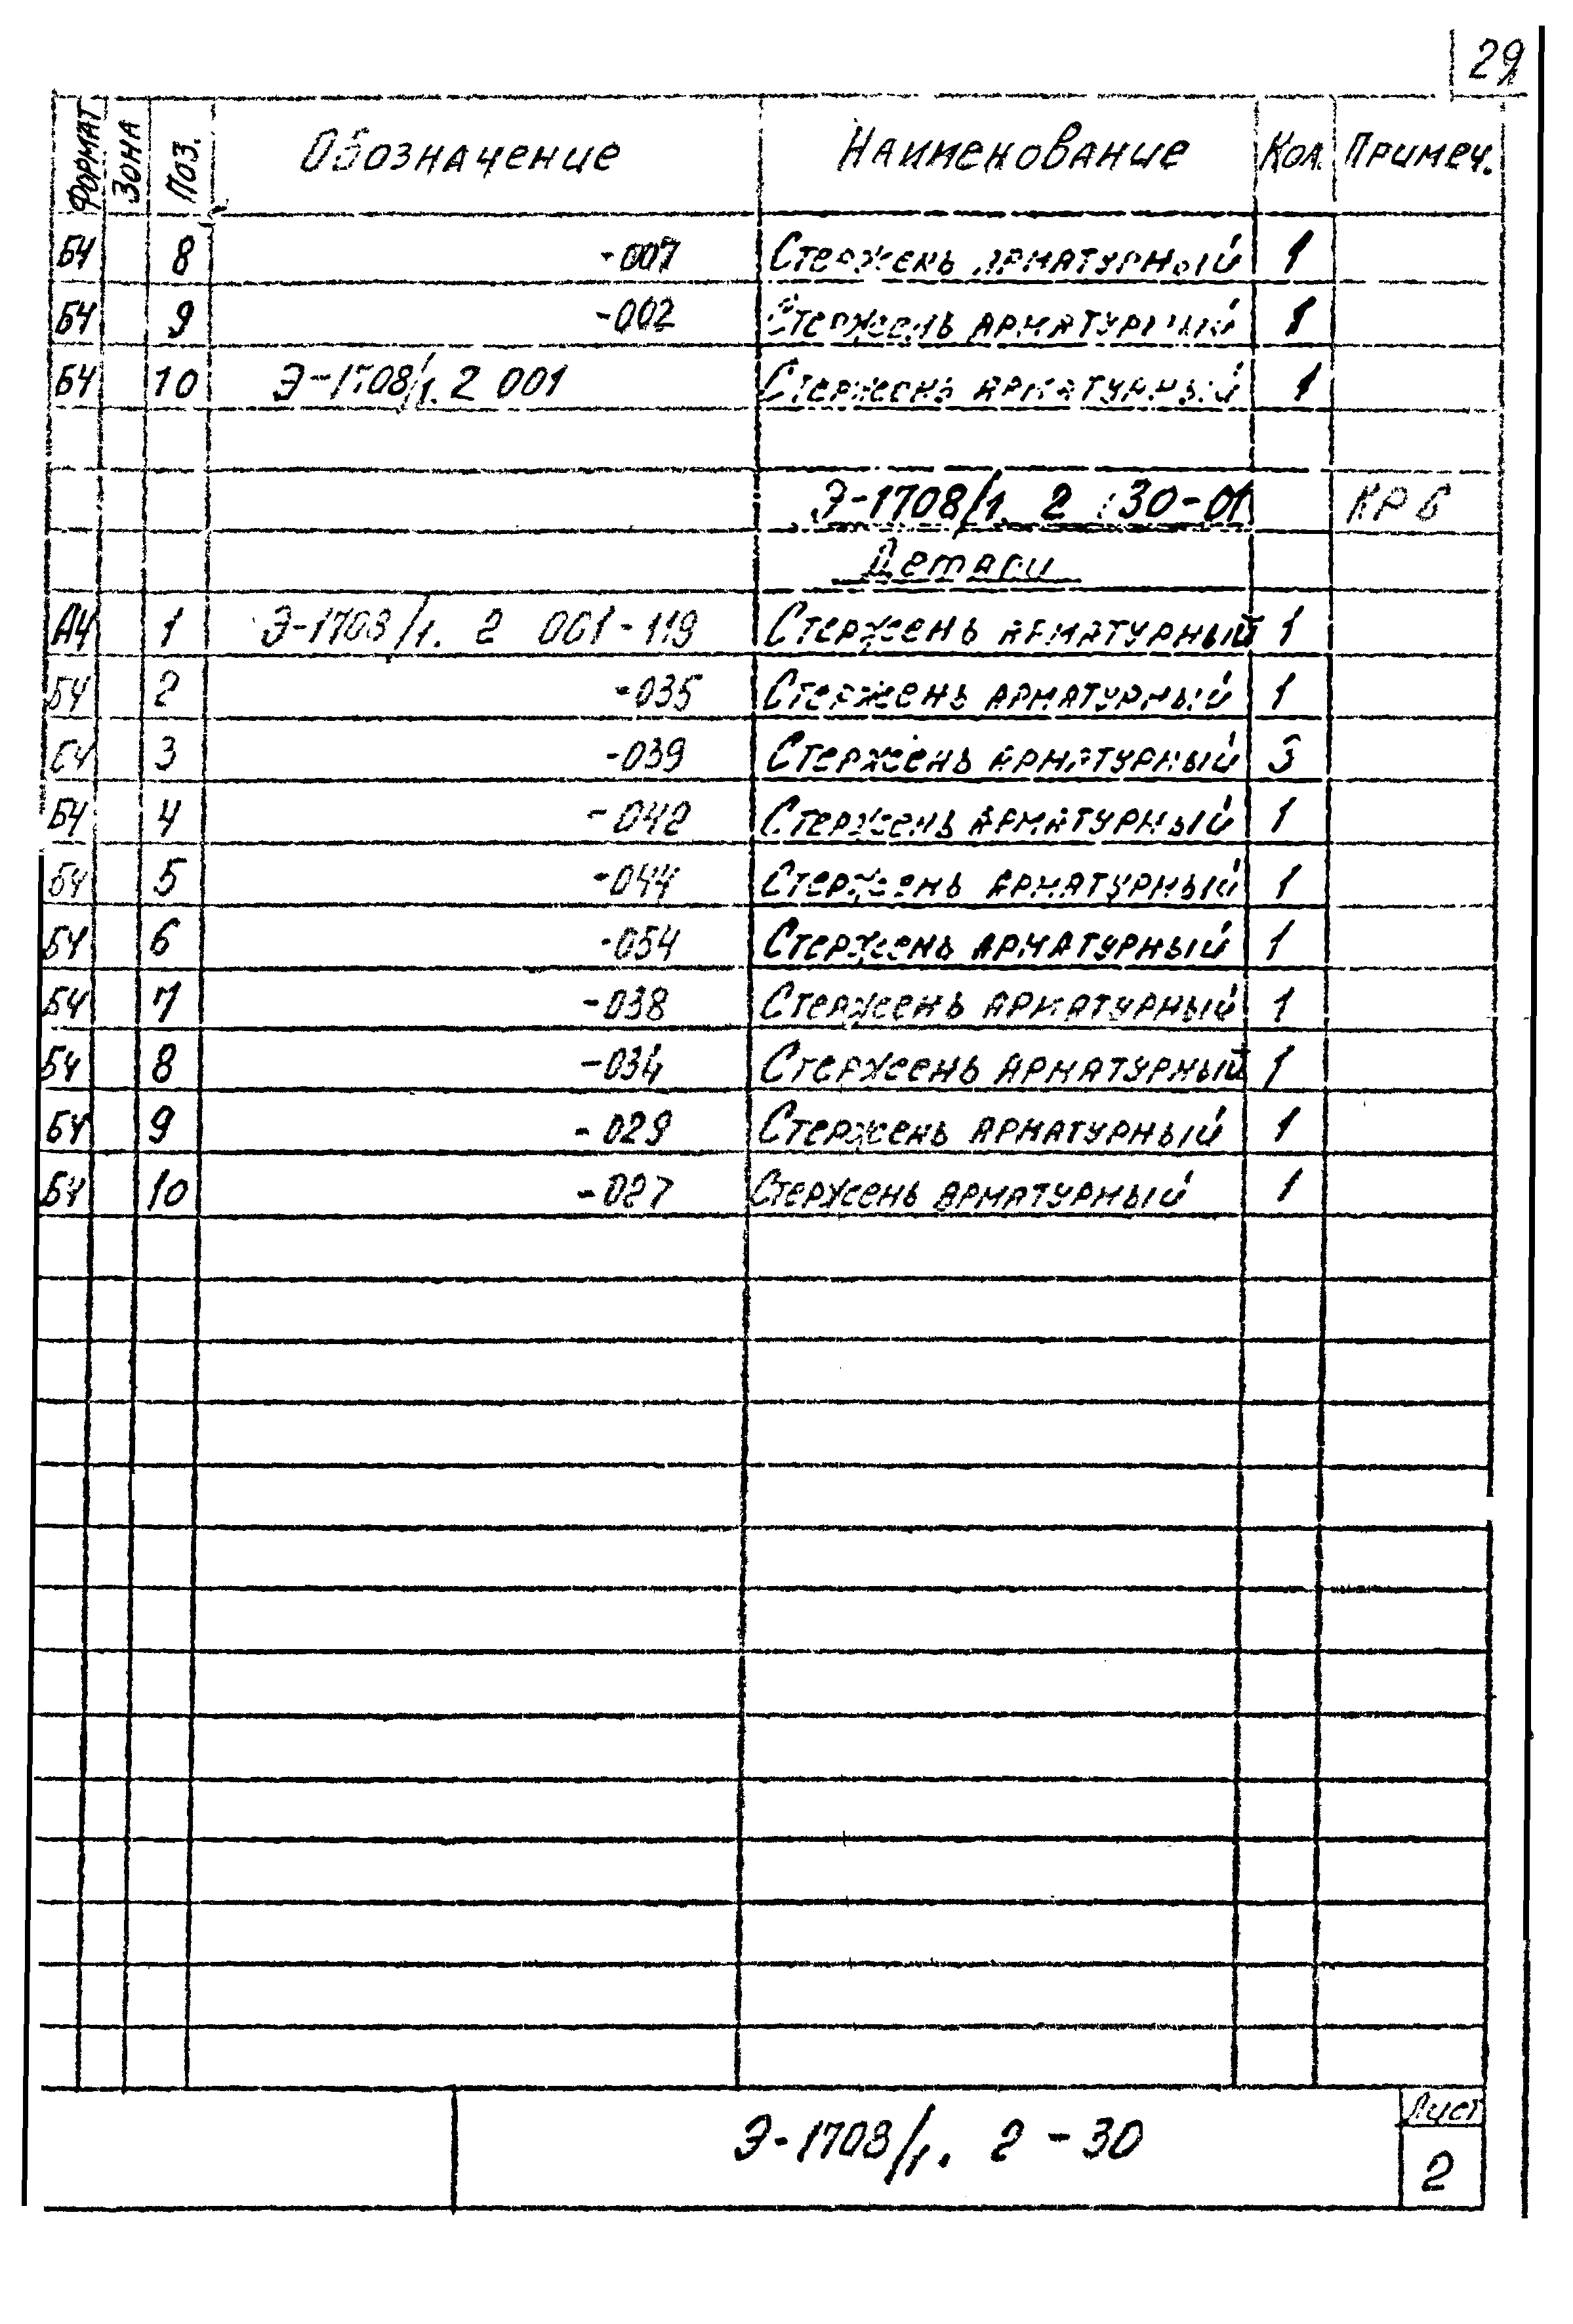 29
Формат Зона Поз. Обозначение Наименование Кол. Примеч.
БЧ 8 -007 Стержень арматурный 1
БЧ 9 -002 Стержень арматурный 1
БЧ 10 Э-1708/1. 2 001 Стержень арматурный 1
Э-1708/1. 2 30-01 КР 6
Детали
А4 1 Э-1708/1. 2 001-119 Стержень арматурный 1
БЧ 2 -035 Стержень арматурный 1
БЧ 3 -039 Стержень арматурный 3
БЧ 4 -042 Стержень арматурный 1
БЧ 5 -044 Стержень арматурный 1
БЧ 6 -054 Стержень арматурный 1
БЧ 7 -038 Стержень арматурный 1
БЧ 8 -034 Стержень арматурный 1
БЧ 9 -029 Стержень арматурный 1
БЧ 10 -027 Стержень арматурный 1
Э-1708/1. 2 - 30
Лист
2